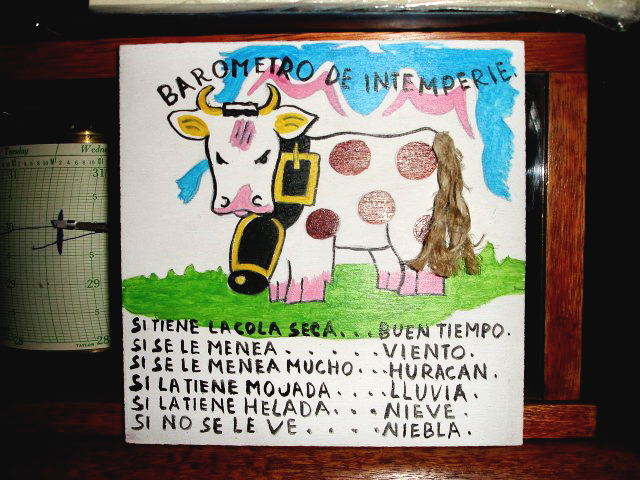 BAROMETRO DE INTEMPERIE.
SI TIENE LA COLA SECA...BUEN TIEMPO.
SI SE LE MENEA......VIENTO.
SI SE LE MENEA MUCHO...HURACAN.
SI LA TIENE MOJADA....LLUVIA.
SI LA TIENE HELADA...NIEVE.
SI NO SE LE VE....NIEBLA.
Tuesday
Wedne
31
31
29
29
28
28
TAYLOR